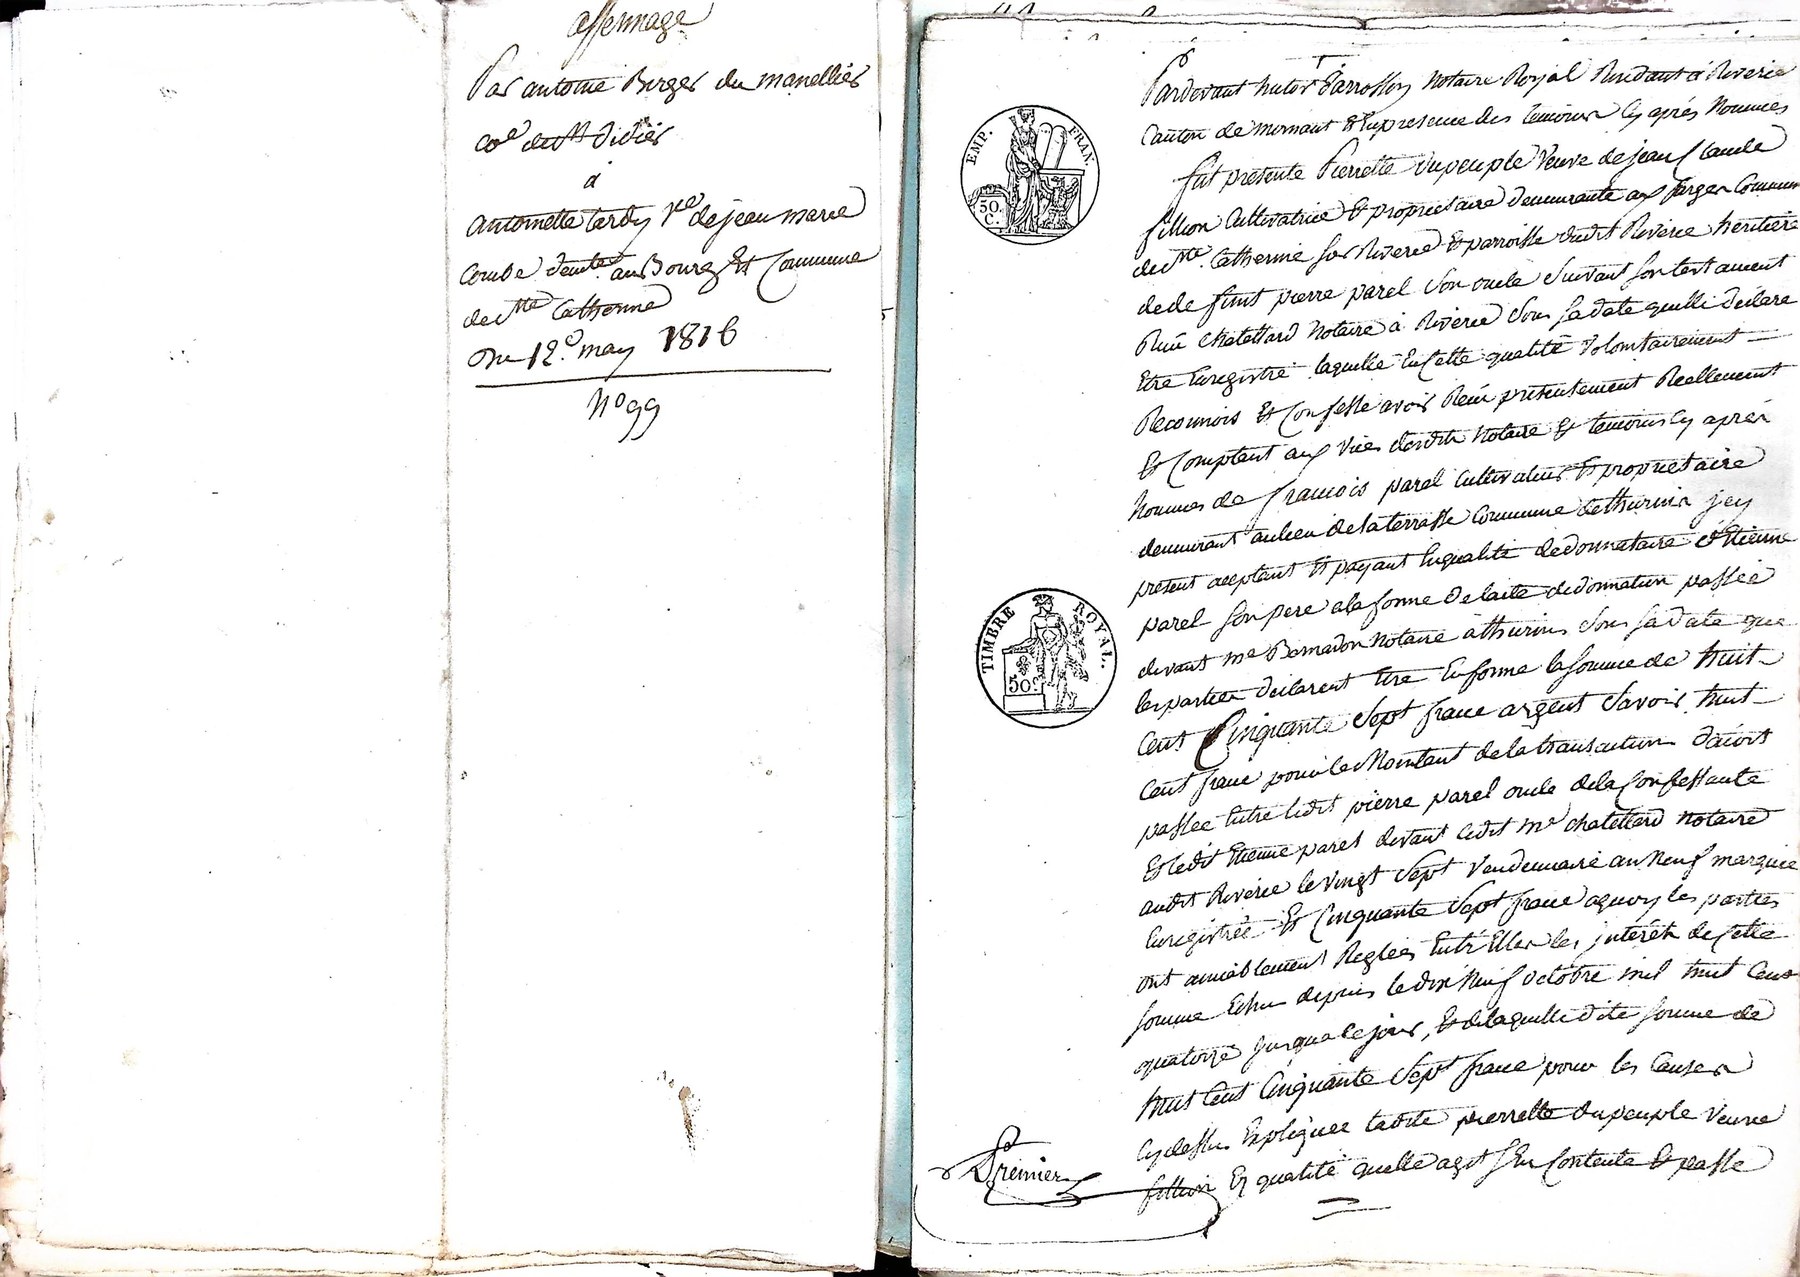 affermage
Par antoine Berger du manellier
coe de St Didier
a
antoinette tardy Ve de jean marie
combe demte au Bourg Et Commune
de Ste Catherine
Du 12e may 1816
No 99
EMP. FRAN.
50. C.
TIMBRE ROYAL.
50c
Pardevant notaire Royal Residant a Riverie
Canton de mornant & En presence des temoins Cy après Nommés
fut presente Pierrette Dupeuple Veuve de jean Claude
fillion Cultivatrice & proprietaire demeurante aux farges Commune
de Ste Catherine sur Riverie & parroisse dudit Riverie heritière
de de funt pierre parel son oncle suivant son testament
Reçu Chatellard Notaire à Riverie sous sa date quelle declare
Etre Enregistré laquelle En Cette qualité Volontairement
Reconnois Et Confesse avoir Reçu presentement Reellement
Et Comptant aux Vues dudit Notaire & temoins Cy après
Nommés de francois parel Cultivateur & proprietaire
demeurant au lieu de la terrasse Commune de thurins jcy
present acceptant & payant En qualité de donnataire d'Etienne
parel son pere a la forme de l'acte de donnation passée
devant me Notaire à thurins sous sa date que
les parties declarent Etre En forme la somme de huit
Cent Cinquante sept franc argent savoir huit
Cent franc pour le Montant de la transaction d'avoit
passée Entre ledit pierre parel oncle de la Confessante
& ledit Etienne parel devant ledit me Chatellard Notaire
audit Riverie le vingt sept Vendemiaire an Neuf marquée
Enregistrée & Cinquante sept franc a quoy les parties
ont amiablement Reglées Entre Elles les jnteréts de Cette
somme Echu depuis le dix Neuf octobre mil huit Cent
quatorze jusqua Ce jour, & de laquelle dite somme de
huit Cent Cinquante sept franc pour les Causes
Cy dessus Expliquée ladite pierrette Dupeuple Veuve
fillion Es qualité quelle agit s'En Contente & passe
Premier